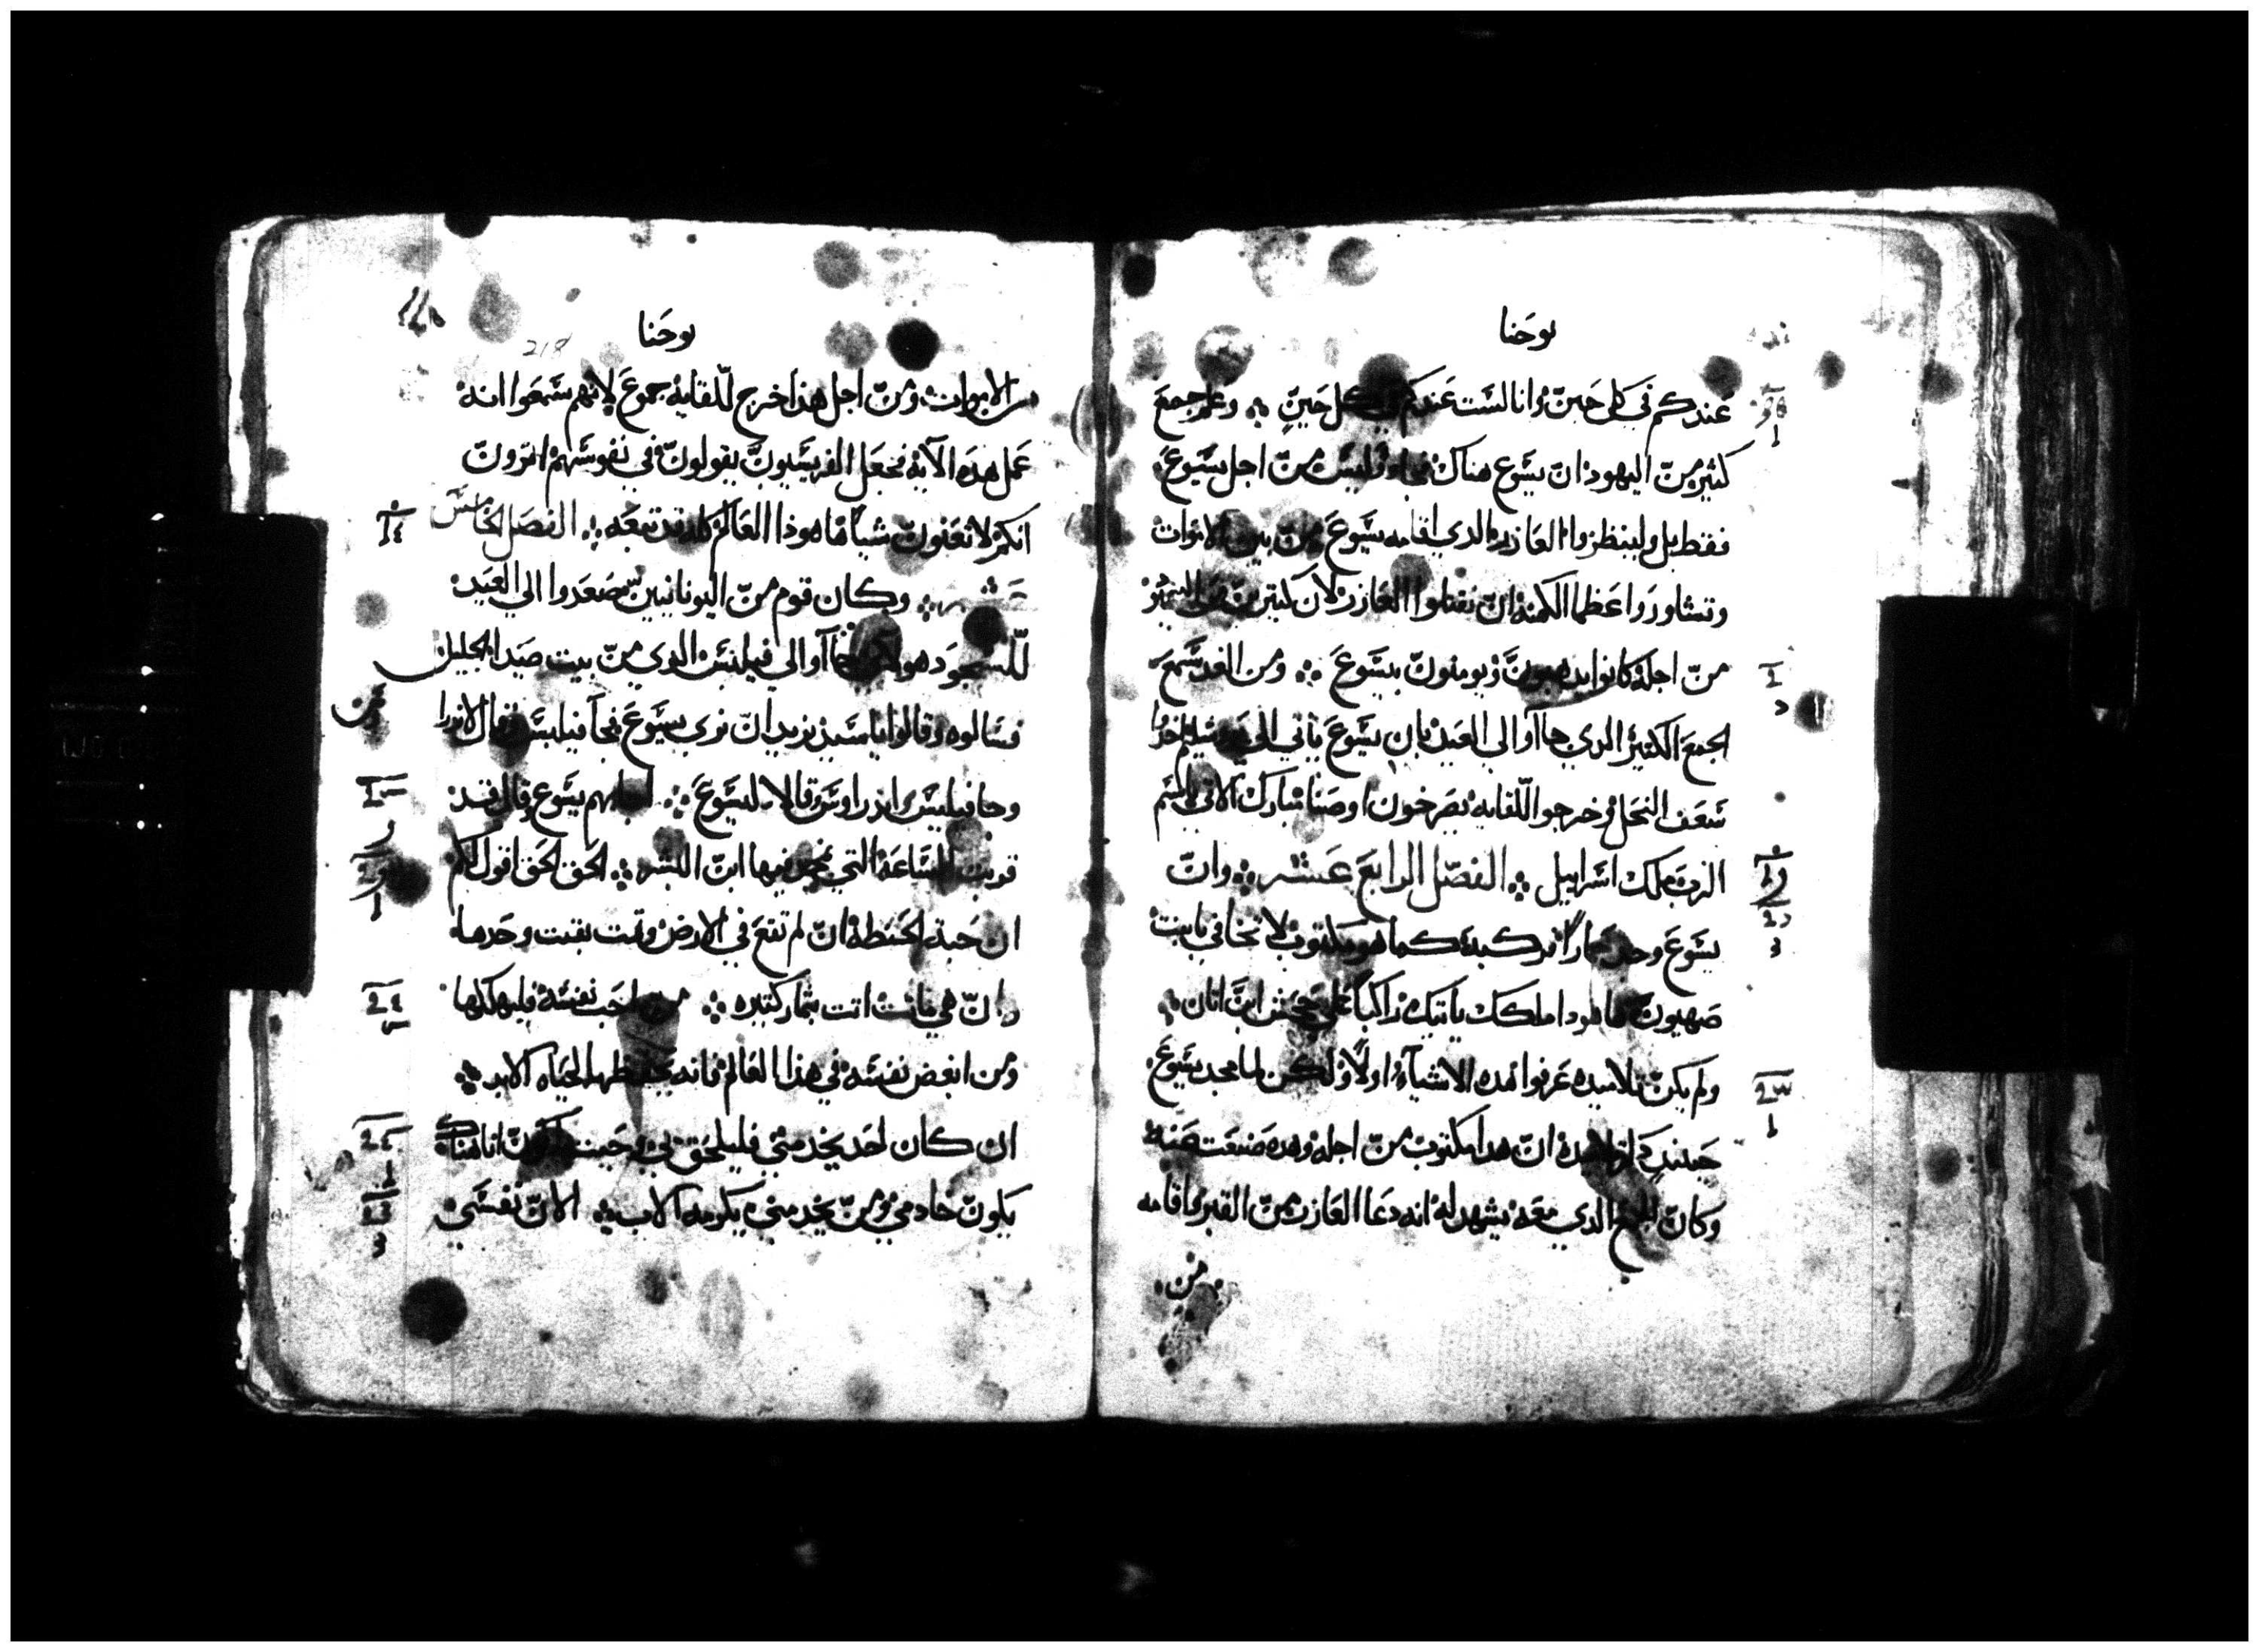 يوحنا
عندكم في كل حين وانا لست عندكم في كل حين ؞ وعلم جمع
كثير من اليهود ان يسوع هناك فجاوا وليس من اجل يسوع
فقط بل ولينظروا العازر الدي اقامه يسوع من بين الاموات
وتشاوروا عظما الكهنة ان يقتلوا العازر لان كثير من
من اجله كانوا يدهبون ويومنون بيسوع ؞ ومن الغد سمع
الجمع الكثير الدي جاآو الي العيد بان يسوع ياتي الي يروشليم اخدوا
سعف النخل وخرجوا للقايه يصرخون اوصنا مبارك الاتي باسم
الرب ملك اسراييل ؞ الفصل الرابع عشر ؞ وان
يسوع وجد حمارا فركبه كما هو مكتوب لا تخافي يابنت
صهيون ها هودا ملكك ياتيك راكبا علي جحش ابن اتان
ولم يكن تلاميده عرفوا هده الاشيآء اولا ولكن لما مجد يسوع
حينيد ان هدا مكتوب من اجله وهده صنعت
وكان الجمع الدي معه يشهد له انه دعا العازر من القبر واقامه
من
يوحنا
218
من الاموات ومن اجل هدا خرج للقايه جموع لانهم سمعوا انه
عمل هده الآيه فجعل الفريسيون يقولون في نفوسهم اترون
انكم لا تغنون شيا ها هودا العالم كله قد تبعه ؞ الفصل الخامس
عشر ؞ وكان قوم من اليونانيين صعدوا الي العيد
للسجود هولاي جاآو الي فيلبس الدي من بيت صيدا الجليل
فسالوه وقالوا يا سيد نريد ان نري يسوع فجآ فيلبس فقال لاندرا
وجا فيلبس واندراوس وقالا ليسوع ؞ اجابهم يسوع وقال قد
قربت الساعة التي يمجد فيها ابن البشر ؞ الحق الحق اقول لكم
ان حبة الحنطة ان لم تقع في الارض وتمت بقيت وحدها
وان هي ماتت اتت بثمار كتيره ؞ من احب نفسه فليهلكها
ومن ابغض نفسه في هدا العالم فانه يحفظها لحياه الابد ؞
ان كان احد يخدمني فليلحق بي وحيت اكون انا هناك
يكون خادمي ومن يخدمني يكرمه الاب ؞ الان نفسي